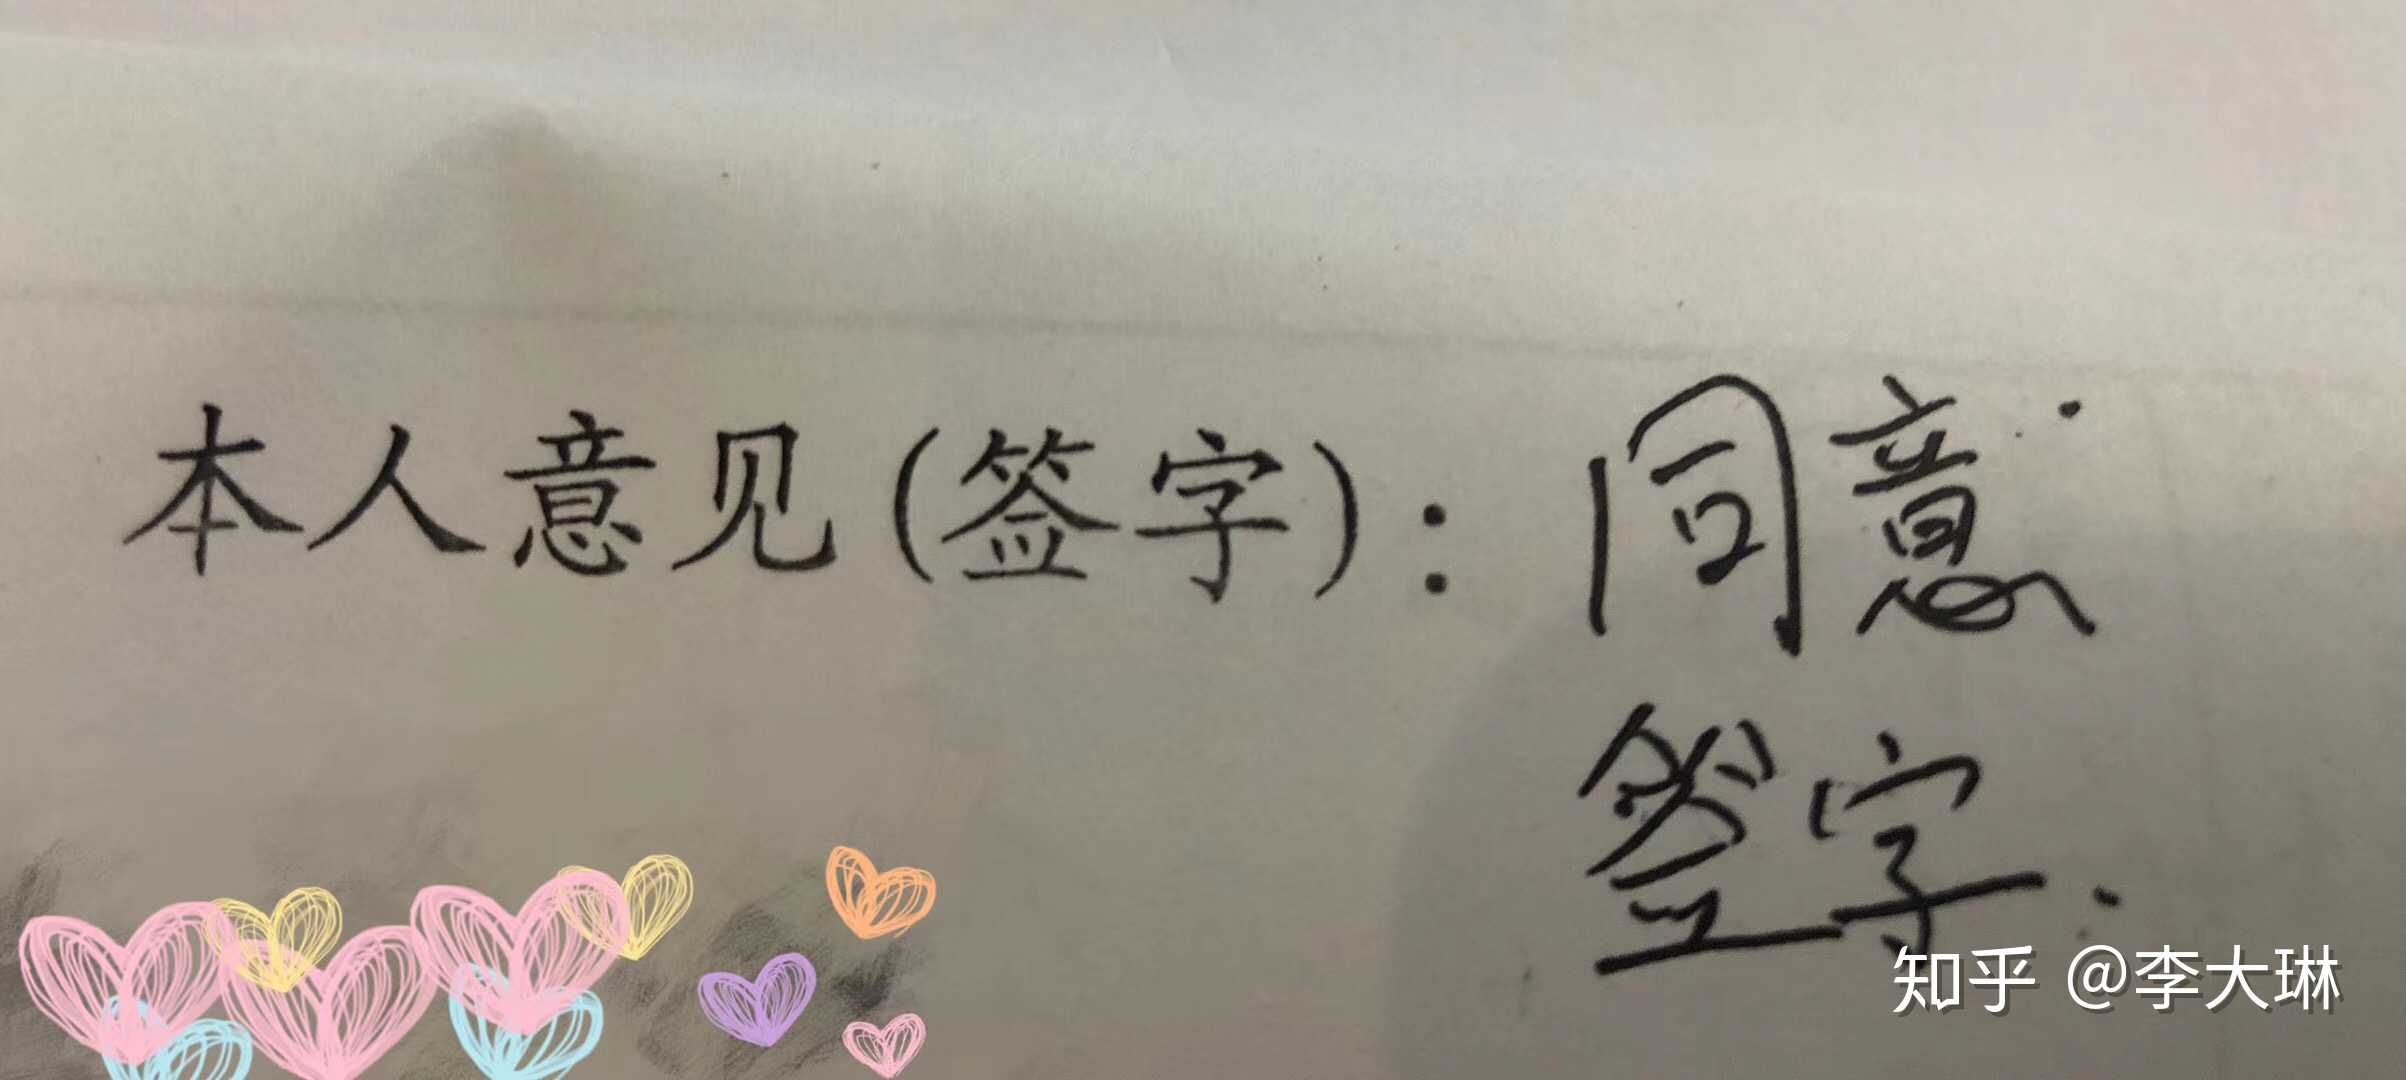 本人意见(签字):同意
签字.
知乎 @李大琳